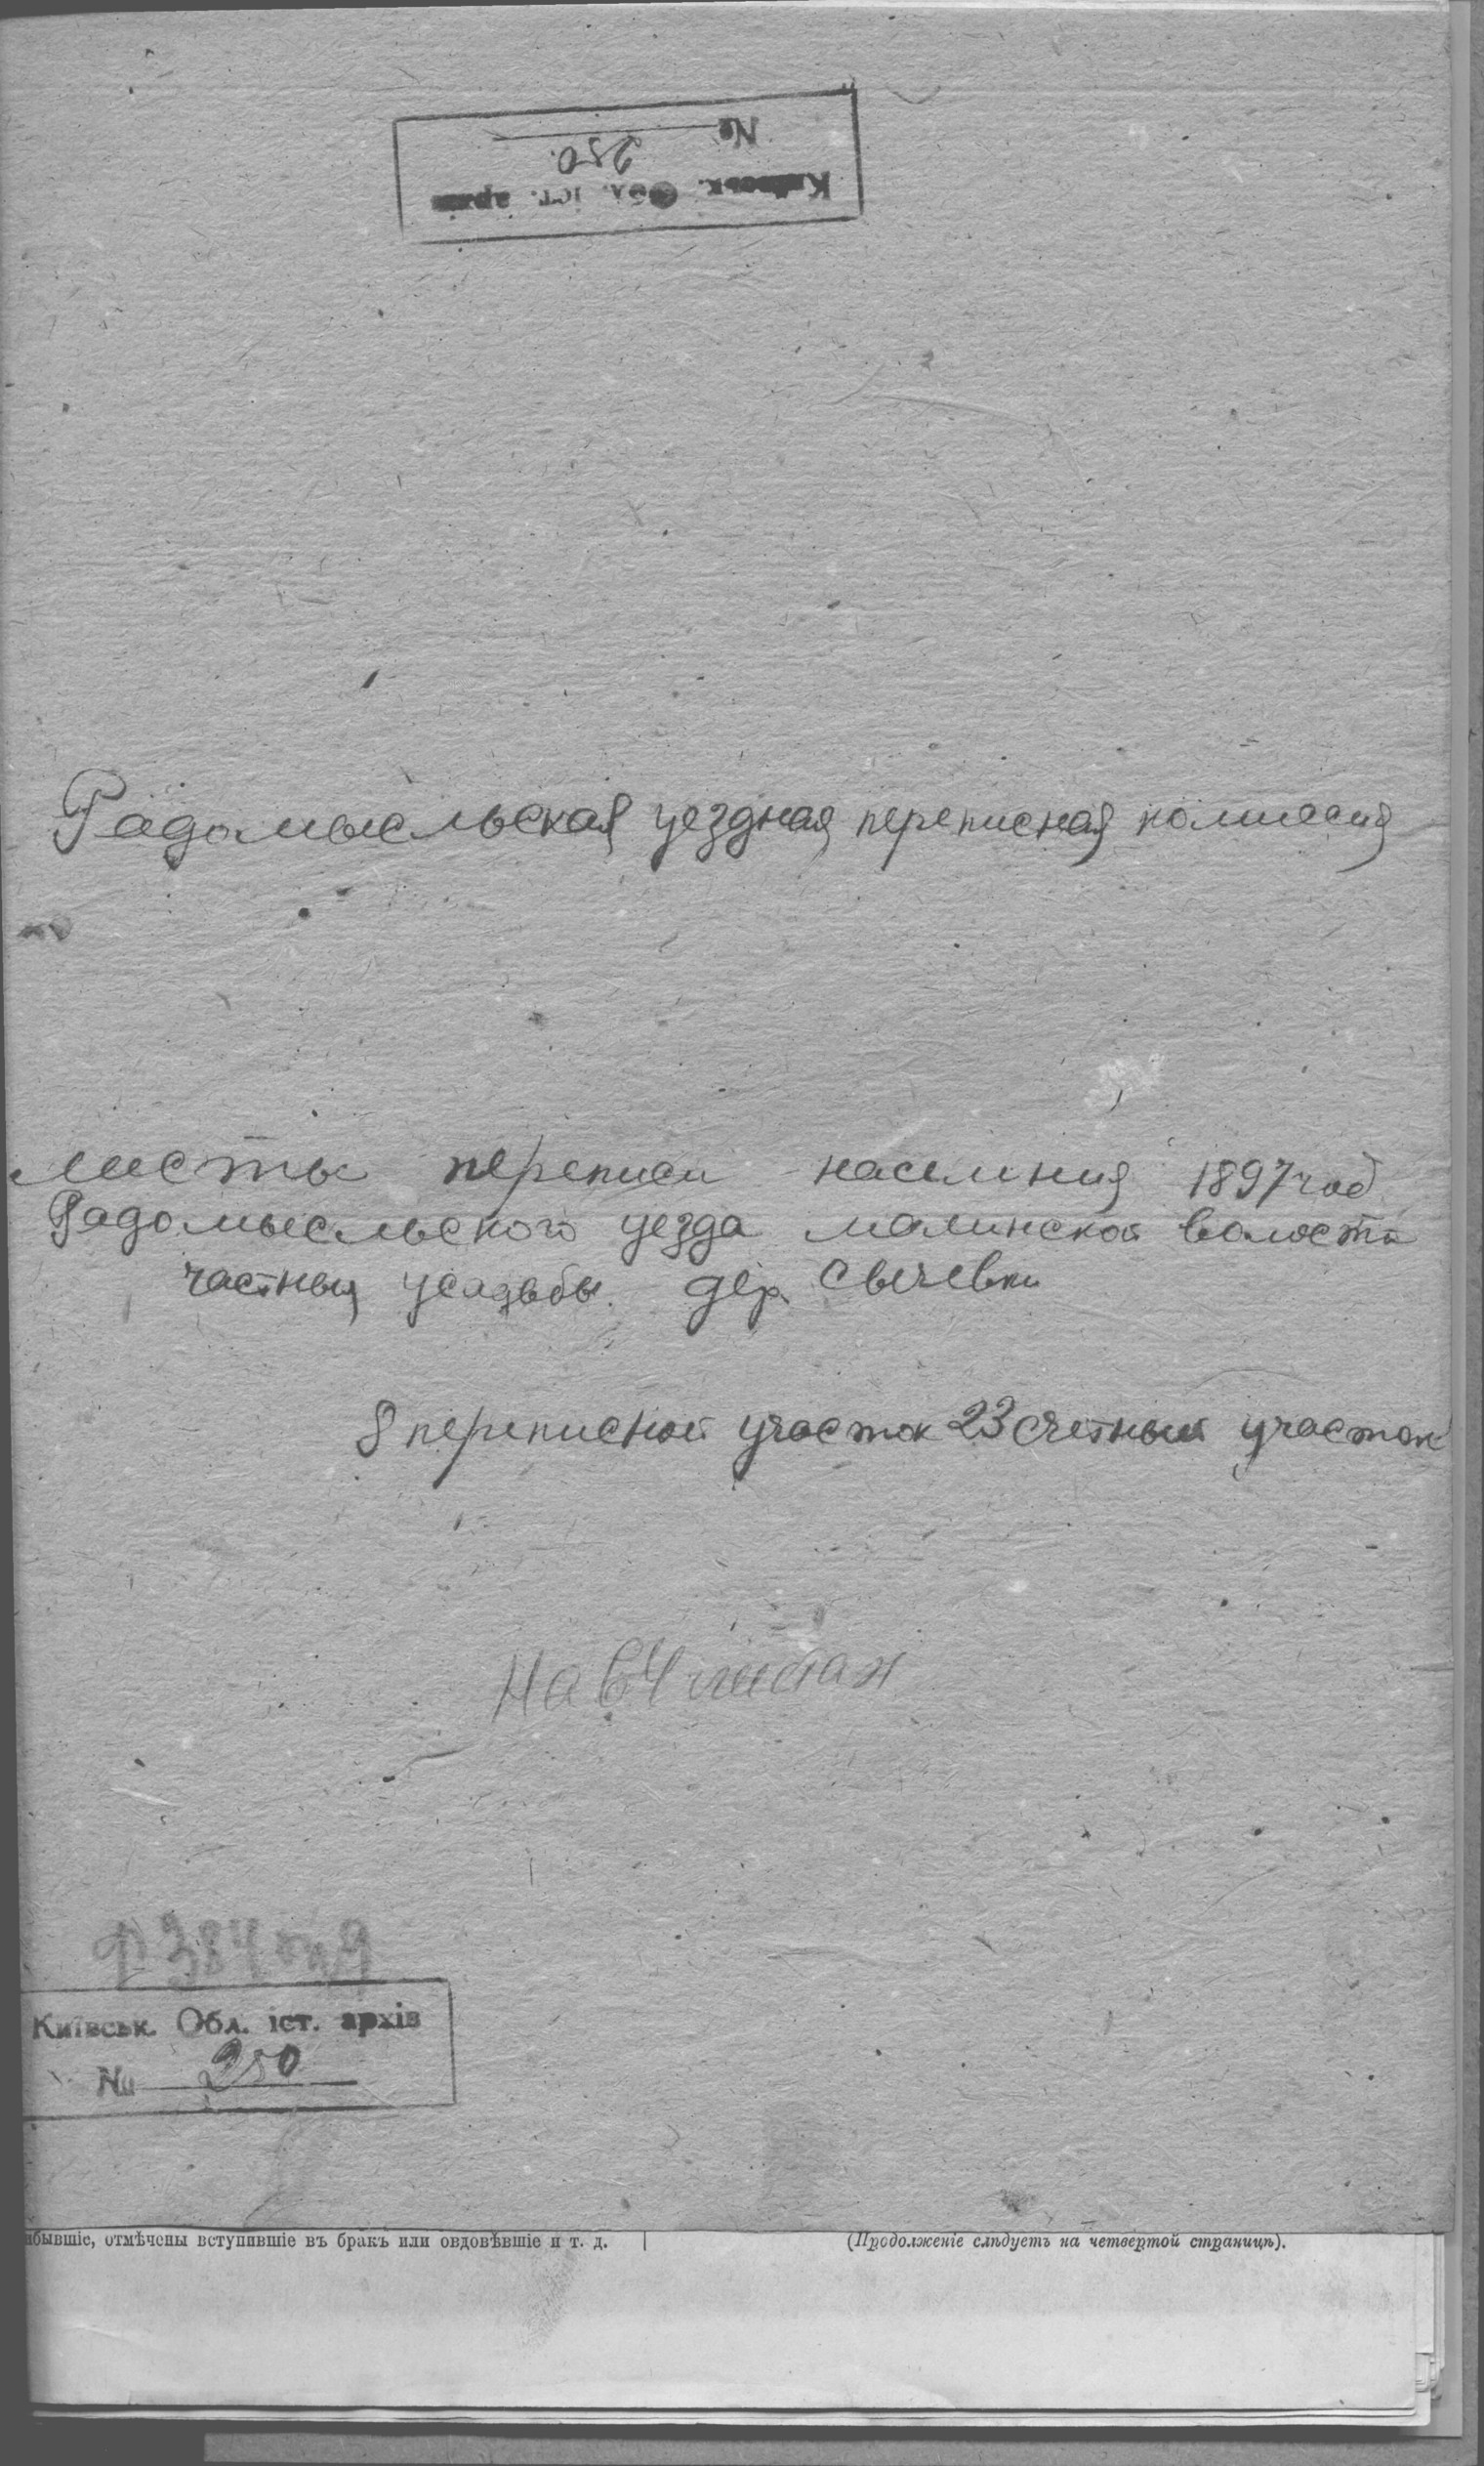 №
250.
Київськ. Обл. іст. архів
Радомысльская уездная переписная комиссия
листы переписи населения 1897 год
Радомысльского уезда малинской волости
частныя усадьбы. дер. Сычевки
8 переписной участок 23 счетный участок
На 64 листах
Ф 384 оп 9
Київськ. Обл. іст. архів
№ 250
ибывшіе, отмѣчены вступившіе въ бракъ или овдовѣвшіе и т. д.
(Продолженіе слѣдуетъ на четвертой страницѣ).